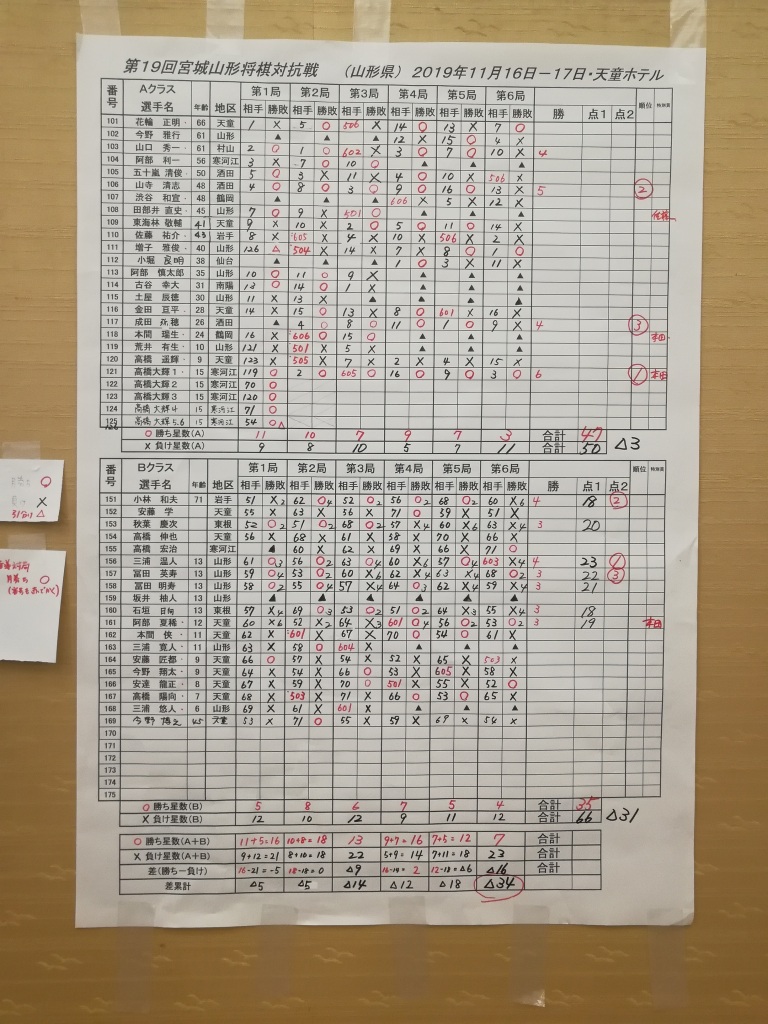 第19回宮城山形将棋対抗戦 （山形県） 2019年11月16日－17日・天童ホテル
番号 Aクラス 選手名 年齢 地区 第1局 第2局 第3局 第4局 第5局 第6局 勝 点1 点2 順位
相手 勝敗 相手 勝敗 相手 勝敗 相手 勝敗 相手 勝敗 相手 勝敗
101 花輪 正明 66 天童 1 X 5 ○ 506 X 14 ○ 13 X 7 ○
102 今野 雅行 61 山形 ▲ ▲ ▲ 12 X 15 ○ 4 X
103 山口 秀一 61 村山 2 ○ 1 ○ 602 X 3 ○ 7 ○ 10 X 4
104 阿部 利一 56 寒河江 3 X 7 ○ 10 ○ ▲ ▲ ▲
105 五十嵐 清俊 50 酒田 5 ○ 3 X 11 X 4 ○ 10 X 506 X
106 山寺 清志 48 酒田 4 ○ 8 ○ 3 ○ 9 ○ 16 ○ 13 X 5 ②
107 渋谷 和宣 48 鶴岡 ▲ ▲ ▲ 606 X 5 X 12 X
108 田部井 直史 45 山形 7 ○ 9 X 501 ○ ▲ ▲ ▲
109 東海林 敬輔 41 天童 9 X 10 X 2 ○ 5 ○ 11 ○ 14 X
110 佐藤 祐介 43 岩手 8 X 605 X 4 X 10 X 506 X 2 X
111 増子 雅俊 40 山形 126 △ 504 X 14 X 7 X 8 ○ 1 ○
112 小堀 良明 38 仙台 ▲ ▲ ▲ 1 ○ 3 X 11 X
113 阿部 慎太郎 35 山形 10 ○ 11 ○ 9 X ▲ ▲ ▲
114 古谷 幸大 31 南陽 13 ○ 14 ○ 1 X ▲ ▲ ▲
115 土屋 辰徳 30 山形 11 X 13 X ▲ ▲ ▲ ▲
116 金田 亘平 28 天童 14 X 15 ○ 13 X 8 ○ 601 X 16 X
117 成田 兵穂 26 酒田 ▲ 4 ○ 8 ○ 11 ○ 1 ○ 9 X 4 ③
118 本間 瑠生 24 鶴岡 16 X 606 ○ 15 ○ ▲ ▲ ▲
119 荒井 有生 10 山形 121 X 501 X 5 X ▲ ▲ ▲
120 高橋 遥輝 9 天童 123 X 505 X 7 X 2 X 4 X 15 X
121 高橋大輝1 15 寒河江 119 ○ 2 ○ 605 ○ 16 ○ 9 ○ 3 ○ 6 ①
122 高橋大輝2 15 寒河江 70 ○
123 高橋大輝3 15 寒河江 120 ○
124 高橋大輝4 15 寒河江 71 ○
125 高橋大輝5.6 15 寒河江 54 ○△
○ 勝ち星数(A) 11 10 7 9 7 3 合計 47
X 負け星数(A) 9 8 10 5 7 11 合計 50 △3
番号 Bクラス 選手名 年齢 地区 第1局 第2局 第3局 第4局 第5局 第6局 勝 点1 点2 順位
相手 勝敗 相手 勝敗 相手 勝敗 相手 勝敗 相手 勝敗 相手 勝敗
151 小林 和夫 71 岩手 51 X2 62 ○4 52 ○2 56 ○2 68 ○2 60 X6 4 18 ②
152 安藤 学 天童 55 X 63 X 56 X 71 ○ 59 X 51 X
153 秋葉 慶次 東根 52 ○2 51 ○2 68 ○2 57 X4 60 X6 63 X4 3 20
154 高橋 伸也 天童 56 X 68 X 61 X 58 X 70 X 66 X
155 高橋 宏治 寒河江 ▲ 60 X 62 X 69 X 66 X 71 ○
156 三浦 温人 13 山形 61 ○3 56 ○2 63 ○4 60 X6 57 ○4 603 X4 4 23 ①
157 冨田 英寿 13 山形 59 ○4 53 ○2 60 X6 62 X4 63 X4 68 ○2 3 22 ③
158 冨田 明寿 13 山形 58 ○2 55 ○4 57 X4 64 ○3 62 X4 59 X4 3 21
159 坂井 柚人 13 山形 ▲ ▲ ▲ ▲ ▲ ▲
160 石垣 日向 13 東根 57 X4 69 ○3 53 ○2 51 ○2 64 X3 55 X4 3 18
161 阿部 夏稀 12 天童 60 X6 52 X2 64 X3 601 ○4 56 ○2 53 ○2 3 19
162 本間 侠 11 天童 62 X 601 X 67 X 70 ○ 54 ○ 61 X
163 三浦 寛人 11 山形 63 X 58 ○ 604 X ▲ ▲ ▲
164 安藤 匠都 9 天童 66 ○ 57 X 54 X 52 X 65 X 503 X
165 今野 翔太 9 天童 64 X 54 X 66 ○ 53 ○ 605 X 58 X
166 安達 龍正 8 天童 67 X 59 X 70 ○ 501 X 55 X 52 ○
167 高橋 陽向 7 天童 68 X 503 X 71 X 66 ○ 53 ○ 65 X
168 三浦 悠人 6 山形 69 X 61 X 601 X ▲ ▲ ▲
169 今野 博之 45 天童 53 X 71 ○ 55 X 59 X 69 X 54 X
170
171
172
173
174
175
○ 勝ち星数(B) 5 8 6 7 5 4 合計 35
X 負け星数(B) 12 10 12 9 11 12 合計 66 △31
○ 勝ち星数(A+B) 11+5=16 10+8=18 13 9+7=16 7+5=12 7 合計
X 負け星数(A+B) 9+12=21 8+10=18 22 5+9=14 7+11=18 23 合計
差(勝ち－負け) 16-21=-5 18-18=0 △9 16-14=2 12-18=△6 △16 合計
差累計 △5 △5 △14 △12 △18 △34